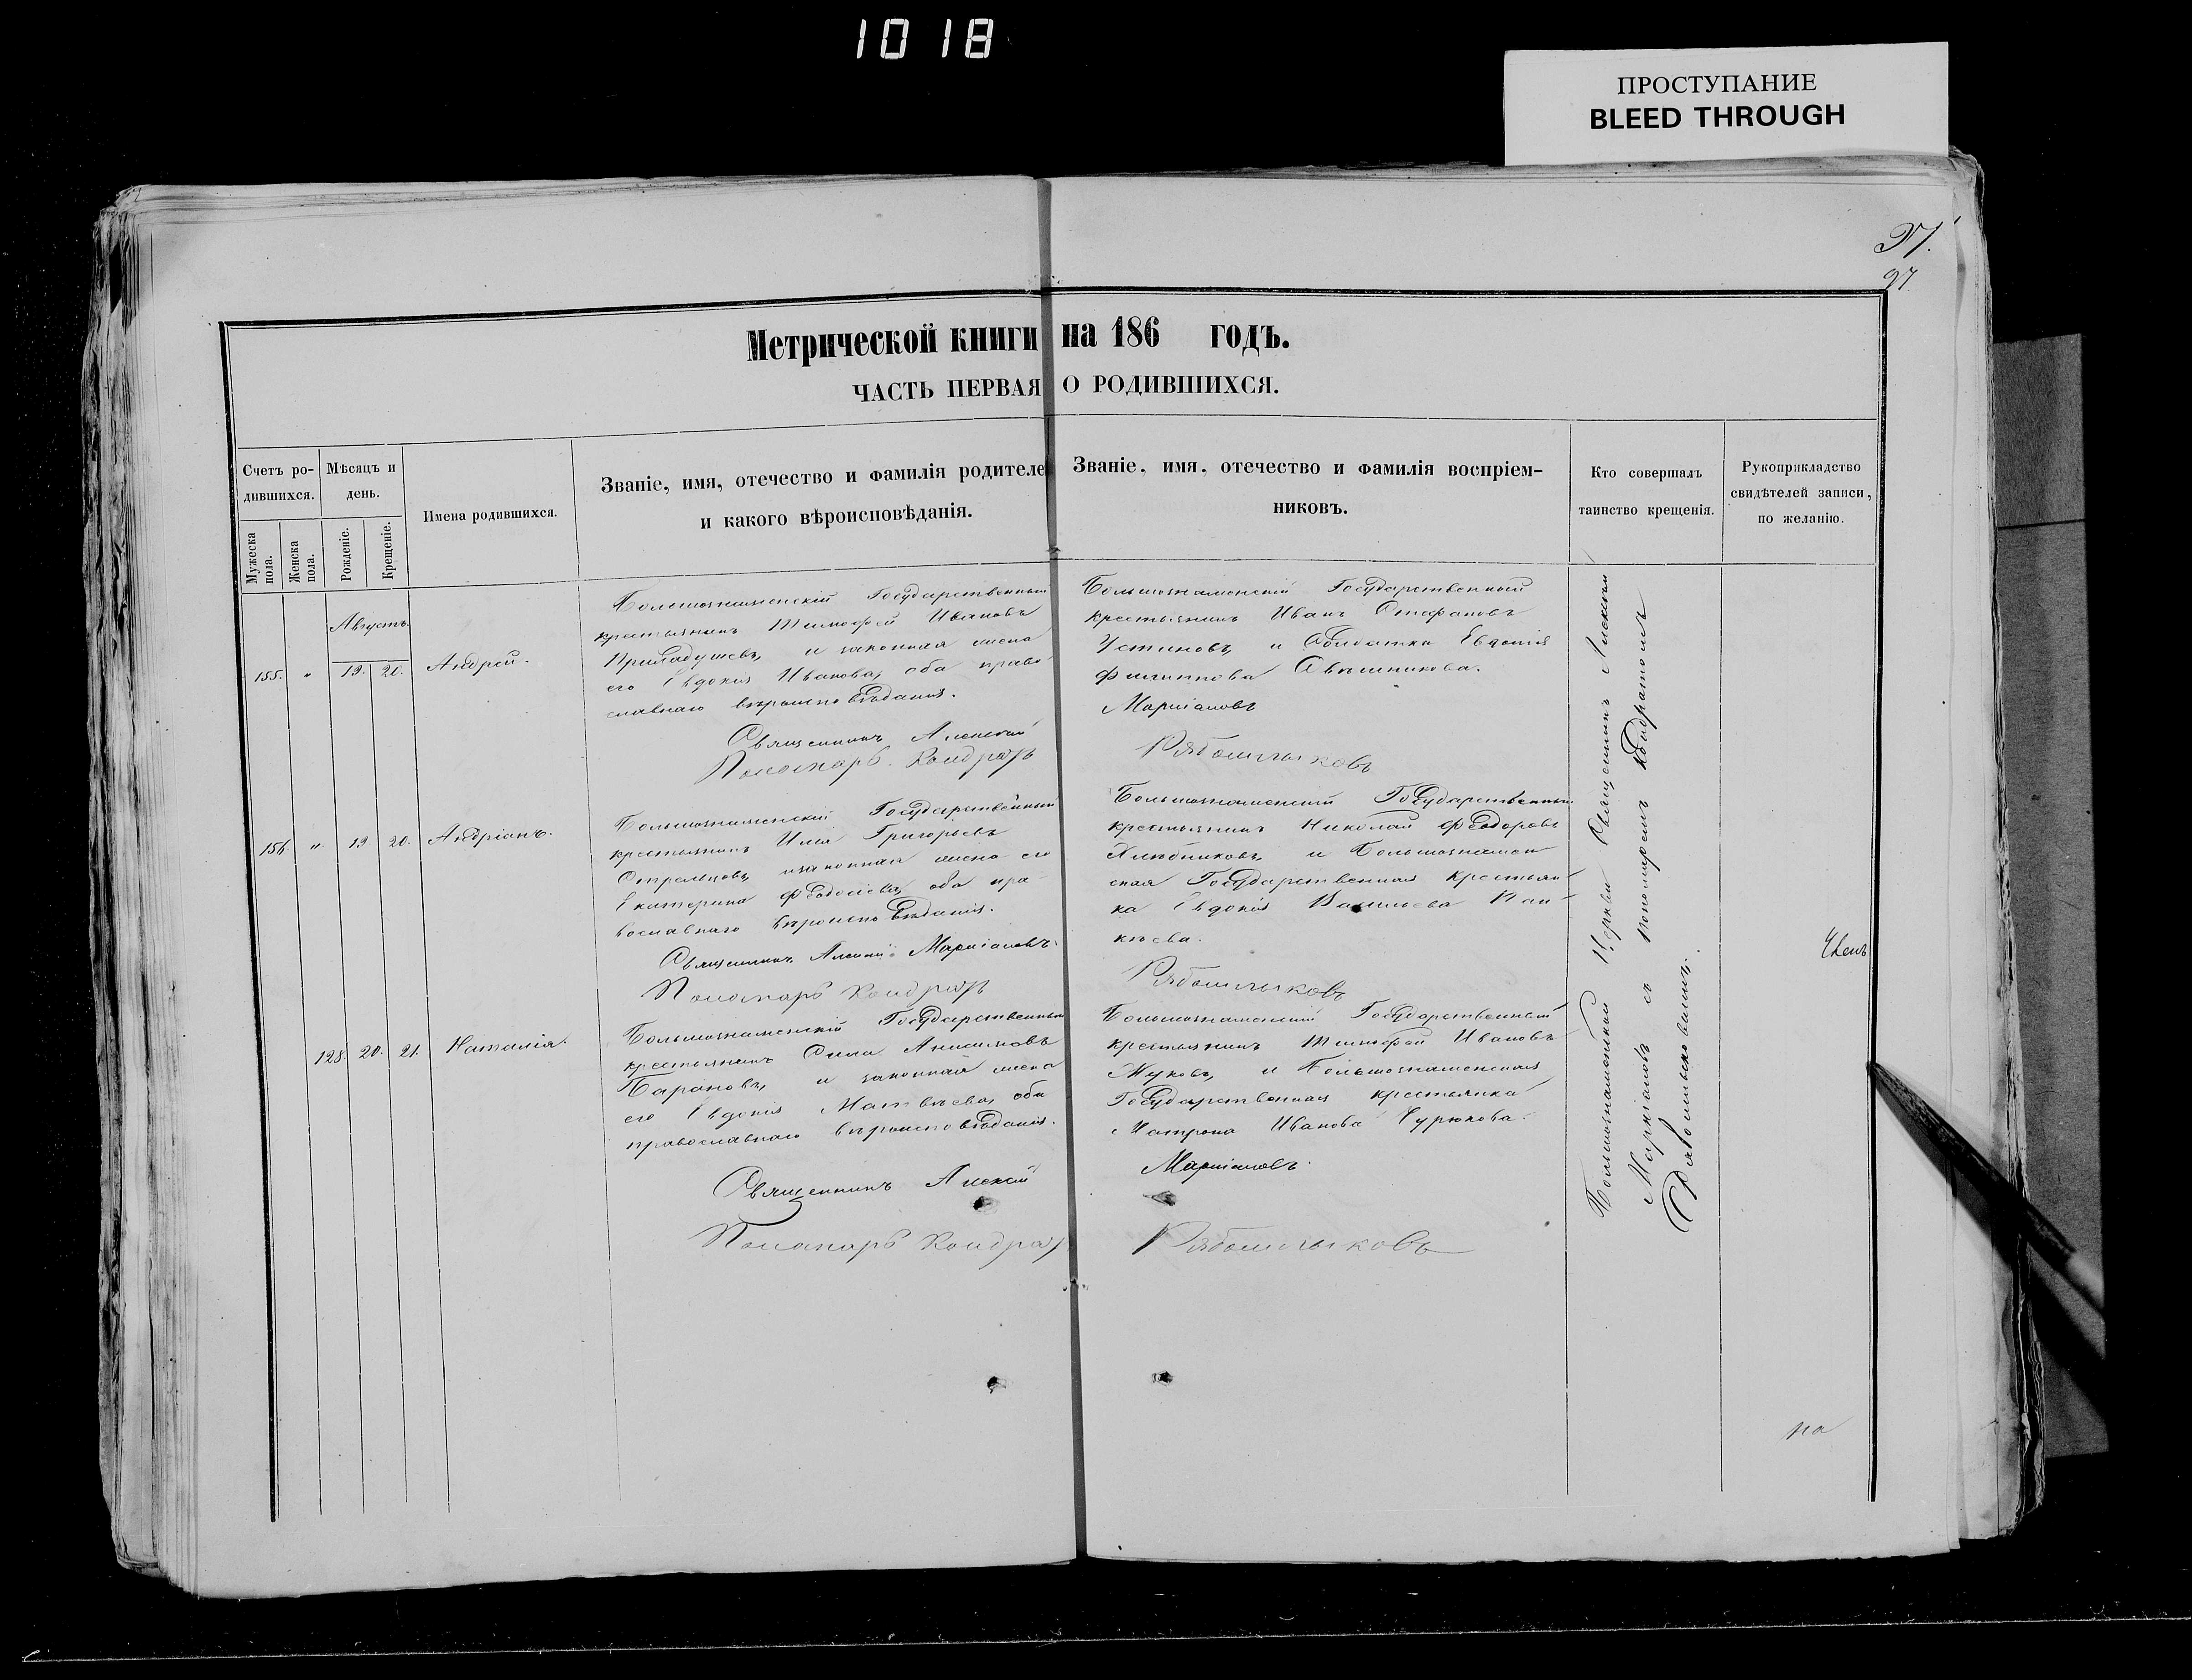 1018
ПРОСТУПАНИЕ
BLEED THROUGH
97
Метрической книги на 186 годъ.
ЧАСТЬ ПЕРВАЯ О РОДИВШИХСЯ.
Счетъ ро-
дившихся.
Мужеска
пола.
Женска
пола.
Мѣсяцъ и
день.
Рожденіе.
Крещеніе.
Имена родившихся.
Званіе, имя, отечество и фамилія родителе
и какого вѣроисповѣданія.
Званіе, имя, отечество и фамилія воспріем-
никовъ.
Кто совершалъ
таинство крещенія.
Рукоприкладство
свидѣтелей записи,
по желанію.
Августъ
155. " 19. 20. Андрей.
Большознаменскій Государственный
крестьянинъ Тимофей Ивановъ
и законная жена
его Евдокія Иванова, оба право-
славнаго вѣроисповѣданія.
Священникъ Алексій
Пономарь Кондратъ
Большознаменскій Государственный
крестьянинъ Иванъ Стефановъ
Устиновъ, и Евдокія
Филиппова
Маркіановъ
Рябошлыковъ
156. " 19 20. Андріанъ.
Большознаменскій Государственный
крестьянинъ Илія Григорьевъ
Стрельцовъ, и законная жена его
Екатерина Феодосіева, оба пра-
вославнаго вѣроисповѣданія.
Священникъ Алексій Маркіановъ.
Пономарь Кондратъ
Большознаменскій Государственный
крестьянинъ Николай Феодоровъ
Хлѣбниковъ, и Большознамен-
ская Государственная крестьян-
ка Евдокія Васильева Пан-
кѣева.
Рябошлыковъ
128. 20. 21. Наталія.
Большознаменскій Государственный
крестьянинъ Сила Анисимовъ
Барановъ, и законная жена
его Евдокія Матвѣева, оба
православнаго вѣроисповѣданія.
Священникъ Алексій
Пономарь Кондратъ
Большознаменскій Государственный
крестьянинъ Тимофей Ивановъ
Жуковъ, и Большознаменская
Государственная крестьянка
Матрона Иванова Чурюкова.
Маркіановъ.
Рябошлыковъ
Большознаменской Церкви Священникъ Алексій
Маркіановъ съ пономаремъ Кондратомъ
Рябошлыковымъ.
по